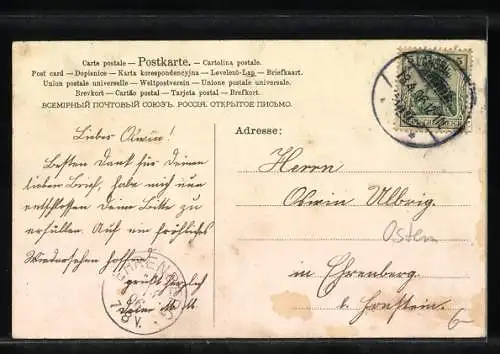 Carte postale – Postkarte. – Cartolina postale.
Post card – Dopisnice – Karta korespondencyjna – Levelező-Lap – Briefkaart.
Union postale universelle – Weltpostverein – Unione postale universale.
Brevkort – Cartão postal – Tarjeta postal – Brefkort.
ВСЕМІРНЫЙ ПОЧТОВЫЙ СОЮЗЪ. РОССІЯ. ОТКРЫТОЕ ПИСЬМО.
Lieber Oswin!
Besten Dank für Deinen
lieben Brief, habe mich nun
entschlossen Deine Bitte zu
erfüllen. Auf ein fröhliches
Wiedersehen hoffend
grüßt herzlich
Adresse:
Herrn
Oswin Ulbrig.
Ostern
in Ehrenberg
b. Hohnstein.
5
5
EHRENBERG
7-8 V.
6